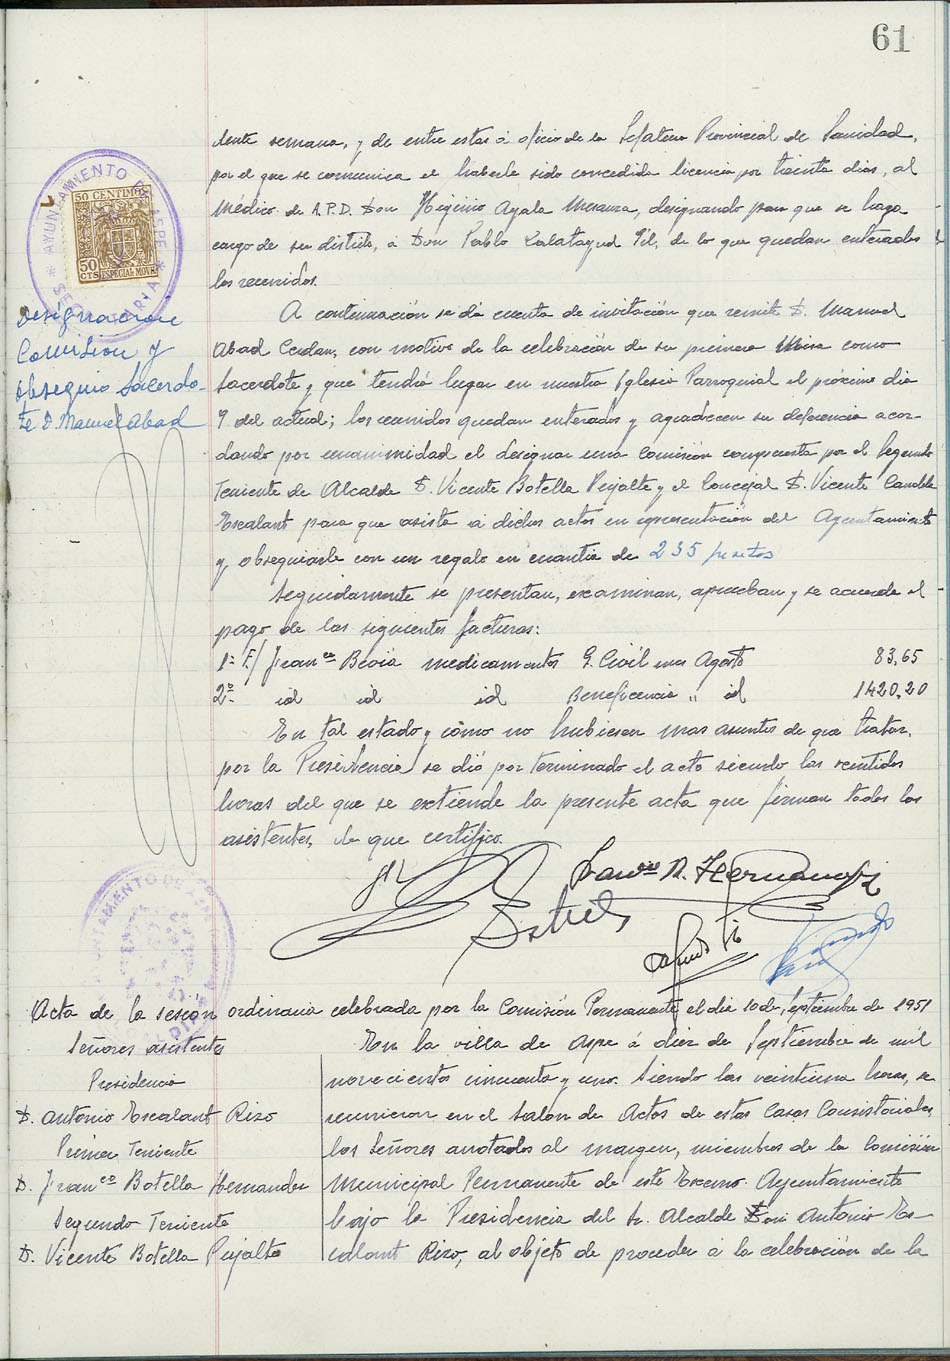 61
sente semana, y de entre estas á oficio de la Jefatura Provincial de Sanidad,
por el que se comunica el haberle sido concedida licencia por treinta dias, al
Médico de A.P.D. Don Higinio Ayala Meranza, designando para que se haga
cargo de su distrito, á Don Pablo Kalatayud Gil, de lo que quedan enterados
los reunidos.
AYUNTAMIENTO DE ASPE
SECRETARIA
50 CENTIMOS
50 CTS ESPECIAL MOVIL
Designación
Comision y
obsequio Sacerdo-
te D. Manuel Abad
A continuación se dá cuenta de invitación que remite D. Manuel
Abad Cerdan, con motivo de la celebración de su primera Misa como
Sacerdote y que tendrá lugar en nuestra Iglesia Parroquial el próximo dia
9 del actual; los reunidos quedan enterados y agradecen su deferencia acor-
dando por unanimidad el designar una comisión compuesta por el Segundo
Teniente de Alcalde D. Vicente Botella Pujalte y el Concejal D. Vicente
Escalant para que asista á dichos actos en representación del Ayuntamiento
y obsequiarle con un regalo en cuantia de 235 pesetas
Seguidamente se presentan, examinan, aprueban y se acuerda el
pago de las siguientes facturas:
1ª F/ Franco Beviá medicamentos G. Civil mes Agosto 83,65
2ª id id id Beneficencia " id 1420,20
En tal estado y como no hubiesen mas asuntos de que tratar,
por la Presidencia se dió por terminado el acto siendo las veintidos
horas del que se extiende la presente acta que firman todos los
asistentes, de que certifico.
Acta de la sesión ordinaria celebrada por la Comisión Permanente el dia 10 de Septiembre de 1951
Señores asistentes
Presidencia
D. Antonio Escalant Rizo
Primer Teniente
D. Franco Botella Hernandez
Segundo Teniente
D. Vicente Botella Pujalte
En la villa de Aspe á diez de Septiembre de mil
novecientos cincuenta y uno. Siendo las veintiuna horas, se
reunieron en el Salón de Actos de estas Casas Consistoriales
los Señores anotados al margen, miembros de la Comisión
Municipal Permanente de este Excmo. Ayuntamiento
bajo la Presidencia del Sr. Alcalde Don Antonio Es-
calant Rizo, al objeto de proceder á la celebración de la